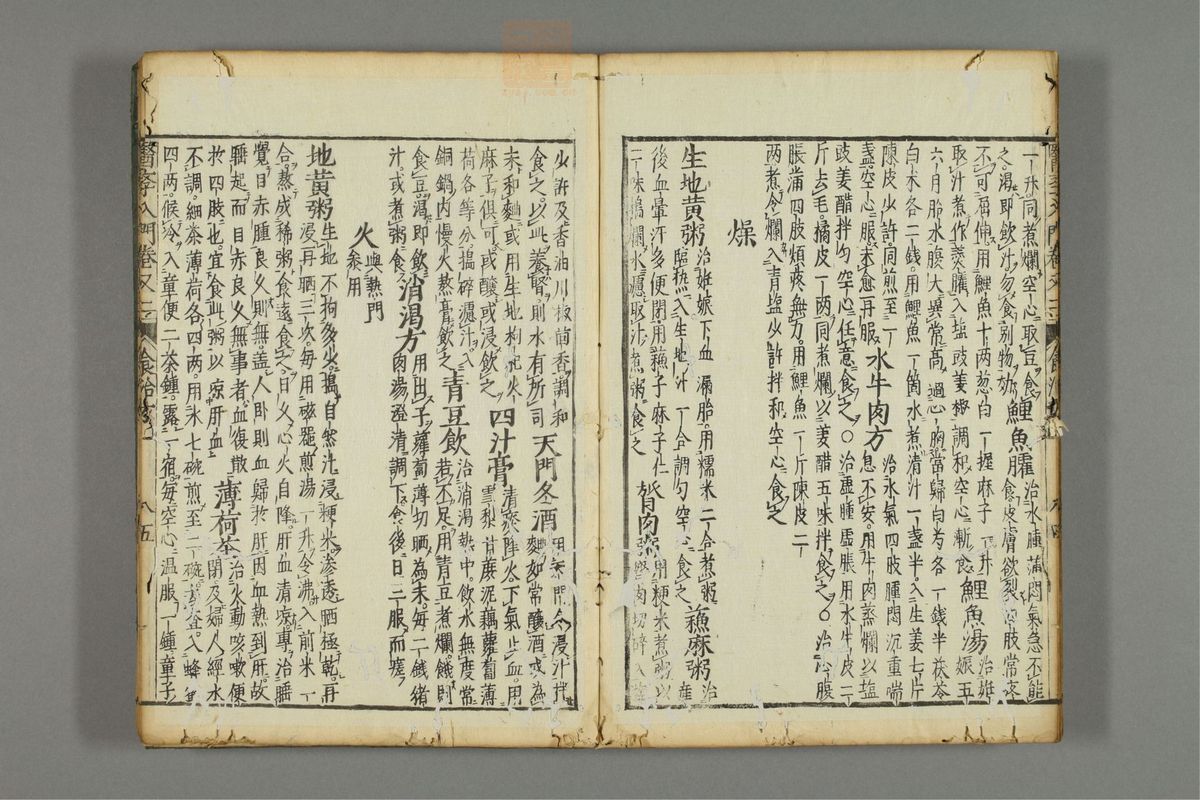 一升同煮爛空心取豆食
之渴即飲汁勿食別物妨鯉魚臛治水腫滿悶氣急不能
不可屈伸用鯉魚十兩葱白一握麻子一升
取汁煮作羹臛入塩豉姜椒調和空心漸食鯉魚湯治姙娠五
六月胎水腹大異常高過心胸當歸白芍各一錢半茯苓
白朮各二錢用鯉魚一箇水煮清汁一盞半入生姜七片
陳皮少許同煎至一
盞空心服未愈再服水牛肉方治水氣四肢腫悶沉重喘
息不安用牛肉蒸爛以塩
豉姜醋拌匀空心任意食之○治虛腫虛脹用水牛皮二
斤去毛橘皮一兩同煮爛以姜醋五味拌食之○治腹
脹滿四肢煩疼無力用鯉魚一斤陳皮二
兩煮令爛入青塩少許拌和空心食之
燥
生地黄粥治姙娠下血漏胎用糯米二合煮粥
臨熟入生地汁一合調匀空心食之蘓麻粥治產
後血暈汗多便閉用蘓子麻子仁
二味搗爛水濾取汁煮粥食之
少許及香油川椒茴香調和
食之以此養腎則水有所司天門冬酒用天門冬浸汁拌
麵如常釀酒或為
末和麵或用生地枸杞火
麻子俱可或釀或浸飲之四汁膏清痰降火下氣止血用
雪梨甘蔗泥藕蘿蔔薄
荷各等分搗碎濾汁入
銅鍋内慢火熬膏飲之青豆飲治消渴熱中飲水無度常
若不足用青豆煮爛饑則
食豆渴即飲
汁或煮粥食消渴方用出子蘿蔔薄切晒為末每二錢猪
肉湯澄清調下食後日三服而瘥
火與熱門
叅用
地黄粥生地不拘多少搗自然汁浸粳米滲透晒極乾再
浸再晒三次每用磁器煎湯一升令沸入前米一
合熬成稀粥食遠食之日久心火自降肝血清凉專治睡
覺目赤腫良久則無盖人卧則血歸於肝因血熱到肝故
睡起而目赤良久無事者血復散
於四肢也宜食此粥以凉肝血薄荷茶治火動咳嗽便
閉及婦人經水
不調細茶薄荷各四兩用水七碗煎至二碗
四兩候冷入童便二茶鍾露一宿每空心温服一鍾童子